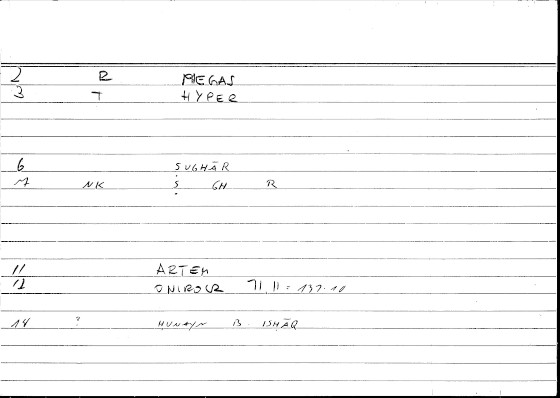 2 R MEGAS
3 T HYPER
6 SUGHĀR
NK S GH R
11 ARTEM
12 ONIROCR II, 11 = 137.10
14 ? HUNAYN B. ISHĀQ